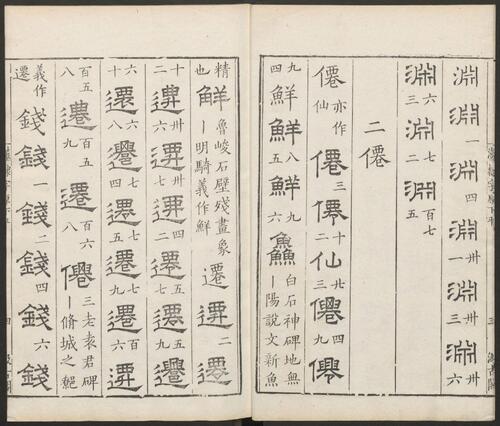 淵 淵 一 淵 四 淵 卅一 淵 卅三 淵 卅六
淵 六三 淵 七二 淵 百七五
二僊
僊 亦作仙 僊 三 僊 十二 仙 廿三 僊 九四 僊
九四 鮮 鮮 八五 鮮 九六 鱻 白石神碑地無｜陽說文新魚
精也 鮮 魯峻石壁殘畫象｜明騎義作鮮 遷 遷 二 遷
十二 遷 卅六 遷 卅四 遷 七二 遷 七五 遷 五九 遷
六十 遷 六八 遷 七四 遷 七五 遷 七九 遷 六百 遷
百五八 遷 百五九 遷 百六八 僊 三老袁君碑｜脩城之
義作遷 錢 錢 一 錢 二 錢 四 錢 六 錢